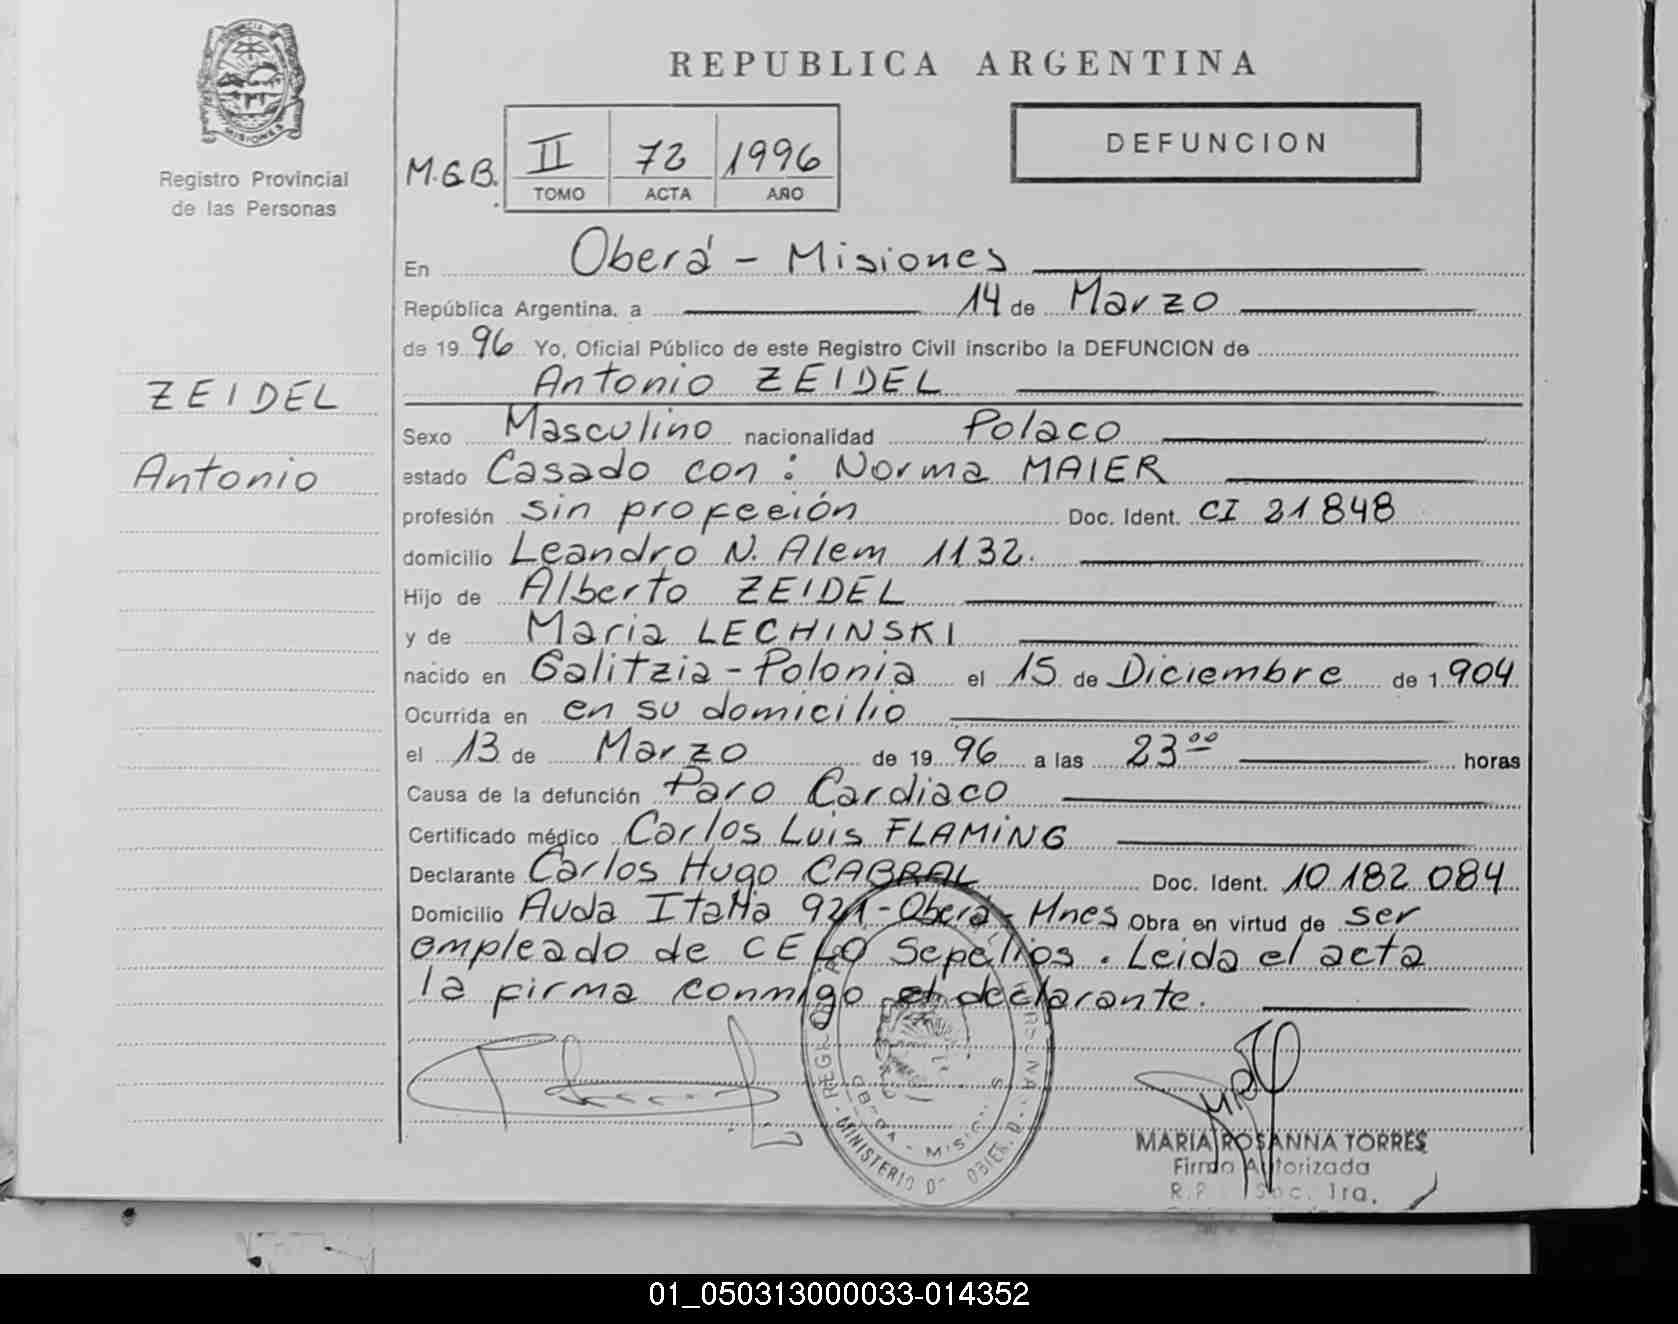 REPUBLICA ARGENTINA
MISIONES
Registro Provincial
de las Personas
M.G.B.
II 72 1996
TOMO ACTA AÑO
DEFUNCION
En Oberá - Misiones
República Argentina, a 14 de Marzo
de 19 96 Yo, Oficial Público de este Registro Civil inscribo la DEFUNCION de
Antonio ZEIDEL
ZEIDEL
Antonio
Sexo Masculino nacionalidad Polaco
estado Casado con: Norma MAIER
profesión sin profeción Doc. Ident. CI 21 848
domicilio Leandro N. Alem 1132.
Hijo de Alberto ZEIDEL
y de Maria LECHINSKI
nacido en Galitzia - Polonia el 15 de Diciembre de 1 904
Ocurrida en en su domicilio
el 13 de Marzo de 19 96 a las 23 00 horas
Causa de la defunción Paro Cardiaco
Certificado médico Carlos Luis FLAMING
Declarante Carlos Hugo CABRAL Doc. Ident. 10 182 084
Domicilio Avda Italia 921 - Oberá - Mnes Obra en virtud de ser
empleado de CELO Sepelios. Leida el acta
la firma conmigo el declarante.
MINISTERIO
MARIA ROSANNA TORRES
Firma Autorizada
01_050313000033-014352